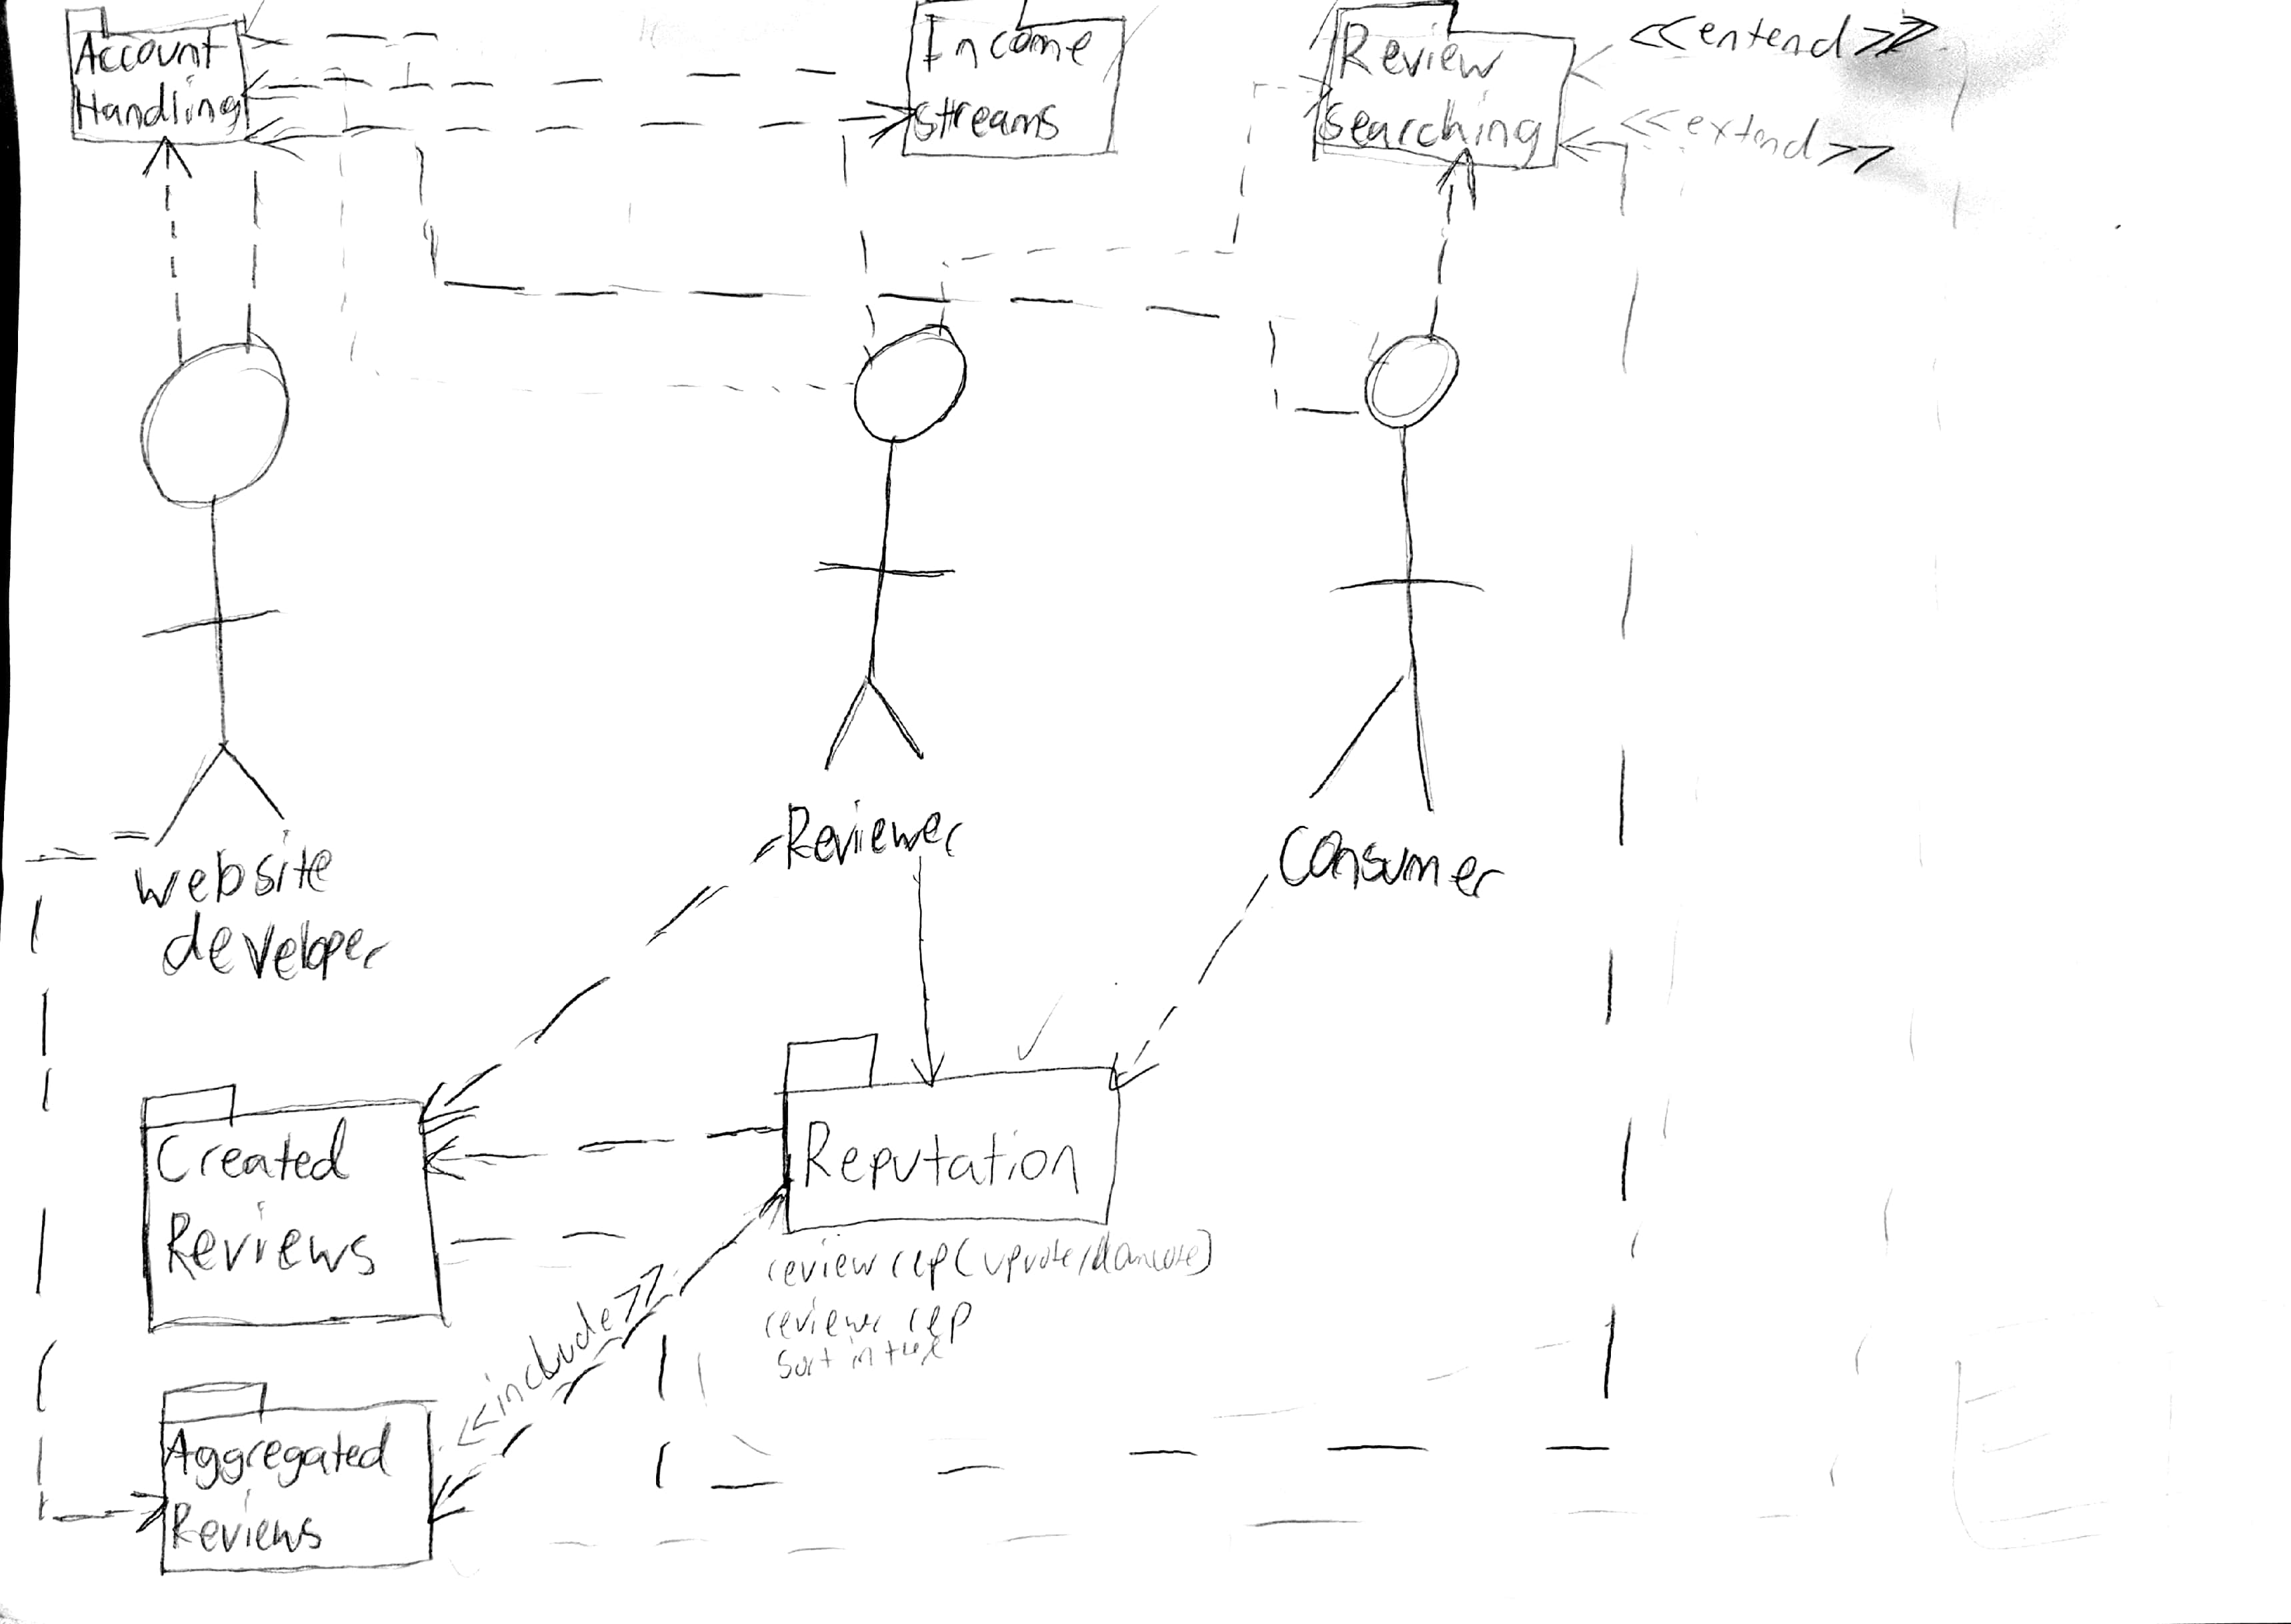 Account
Handling
Income
streams
Review
searching
<<entend>>
<<extend>>
website
developer
Reviewer
Consumer
Created
Reviews
Reputation
review rep (upvote/downvote)
reviewer rep
sort in
<<include>>
Aggregated
Reviews